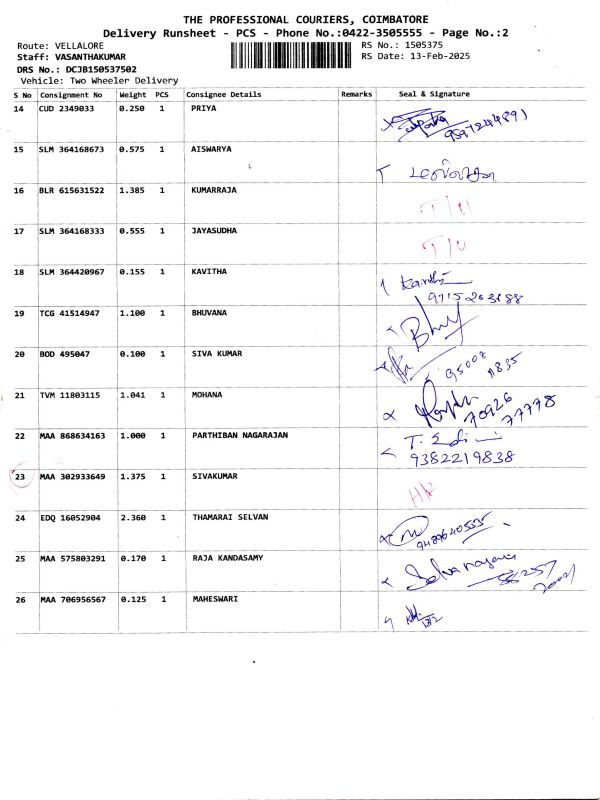 THE PROFESSIONAL COURIERS, COIMBATORE
Delivery Runsheet - PCS - Phone No.:0422-3505555 - Page No.:2
Route: VELLALORE RS No.: 1505375
Staff: VASANTHAKUMAR RS Date: 13-Feb-2025
DRS No.: DCJB150537502
Vehicle: Two Wheeler Delivery
S No Consignment No Weight PCS Consignee Details Remarks Seal & Signature
14 CUD 2349033 0.250 1 PRIYA
15 SLM 364168673 0.575 1 AISWARYA
16 BLR 615631522 1.385 1 KUMARRAJA
17 SLM 364168333 0.555 1 JAYASUDHA
18 SLM 364420967 0.155 1 KAVITHA
19 TCG 41514947 1.100 1 BHUVANA
20 BOD 495047 0.100 1 SIVA KUMAR
21 TVM 11803115 1.041 1 MOHANA
70926
77778
22 MAA 868634163 1.000 1 PARTHIBAN NAGARAJAN
9382219838
23 MAA 302933649 1.375 1 SIVAKUMAR
24 EDQ 16052904 2.360 1 THAMARAI SELVAN
25 MAA 575803291 0.170 1 RAJA KANDASAMY
26 MAA 706956567 0.125 1 MAHESWARI